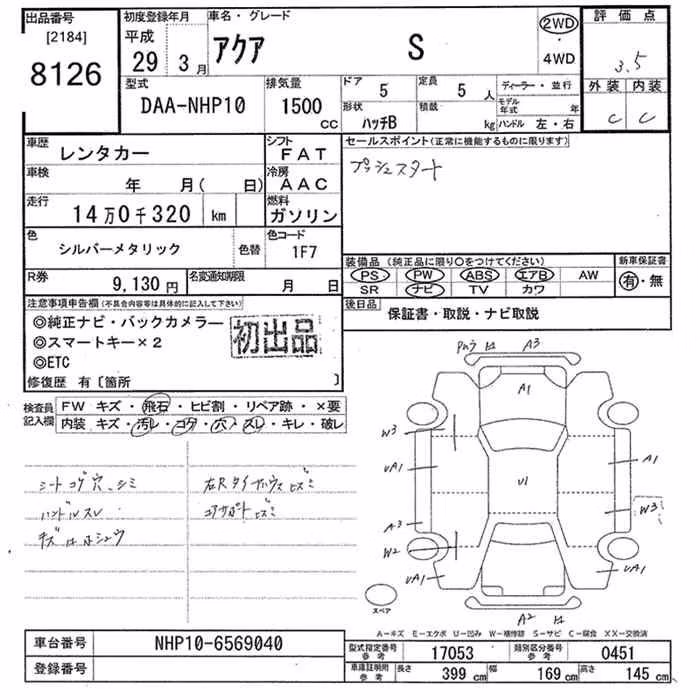 出品番号
[2184]
8126
初度登録年月
平成
29 3月
車名・グレード
アクア S
2WD
4WD
評価点
3.5
外装 内装
C C
型式
DAA-NHP10
排気量
1500
CC
ドア
5
定員
5人
形状
ハッチB
積載
kg
ディーラー・並行
モデル年式 年
ハンドル 左・右
車歴
レンタカー
車検
年 月( 日)
走行
14万0千320 km
シフト
FAT
冷房
AAC
燃料
ガソリン
色
シルバーメタリック
色替
色コード
1F7
R券
9,130円
名変通知期限
月 日
セールスポイント(正常に機能するものに限ります)
プッシュスタート
装備品(純正品に限り○をつけてください)
PS PW ABS エアB AW
SR ナビ TV カワ
新車保証書
有・無
後日品
保証書・取説・ナビ取説
注意事項申告欄(不具合内容等は具体的に記入して下さい)
◎純正ナビ・バックカメラー
◎スマートキー×2
◎ETC
初出品
修復歴 有〔箇所 〕
検査員記入欄
FW キズ・飛石・ヒビ割・リペア跡・×要
内装 キズ・汚レ・コゲ・穴・スレ・キレ・破レ
シートコゲ穴、シミ
ハンドルスレ
右Rタイヤハウスヒズミ
コアサポートヒズミ
A3
A1
W3
UA1
A1
U1
W3
A3
W2
UA1
UA1
A2
スペア
A−キズ E−エクボ U−凹み W−補修跡 S−サビ C−腐食 XX−交換済
車台番号
NHP10-6569040
登録番号
型式指定番号 参考
17053
類別区分番号 参考
0451
車庫証明用 参考
長さ 399 cm
幅 169 cm
高さ 145 cm